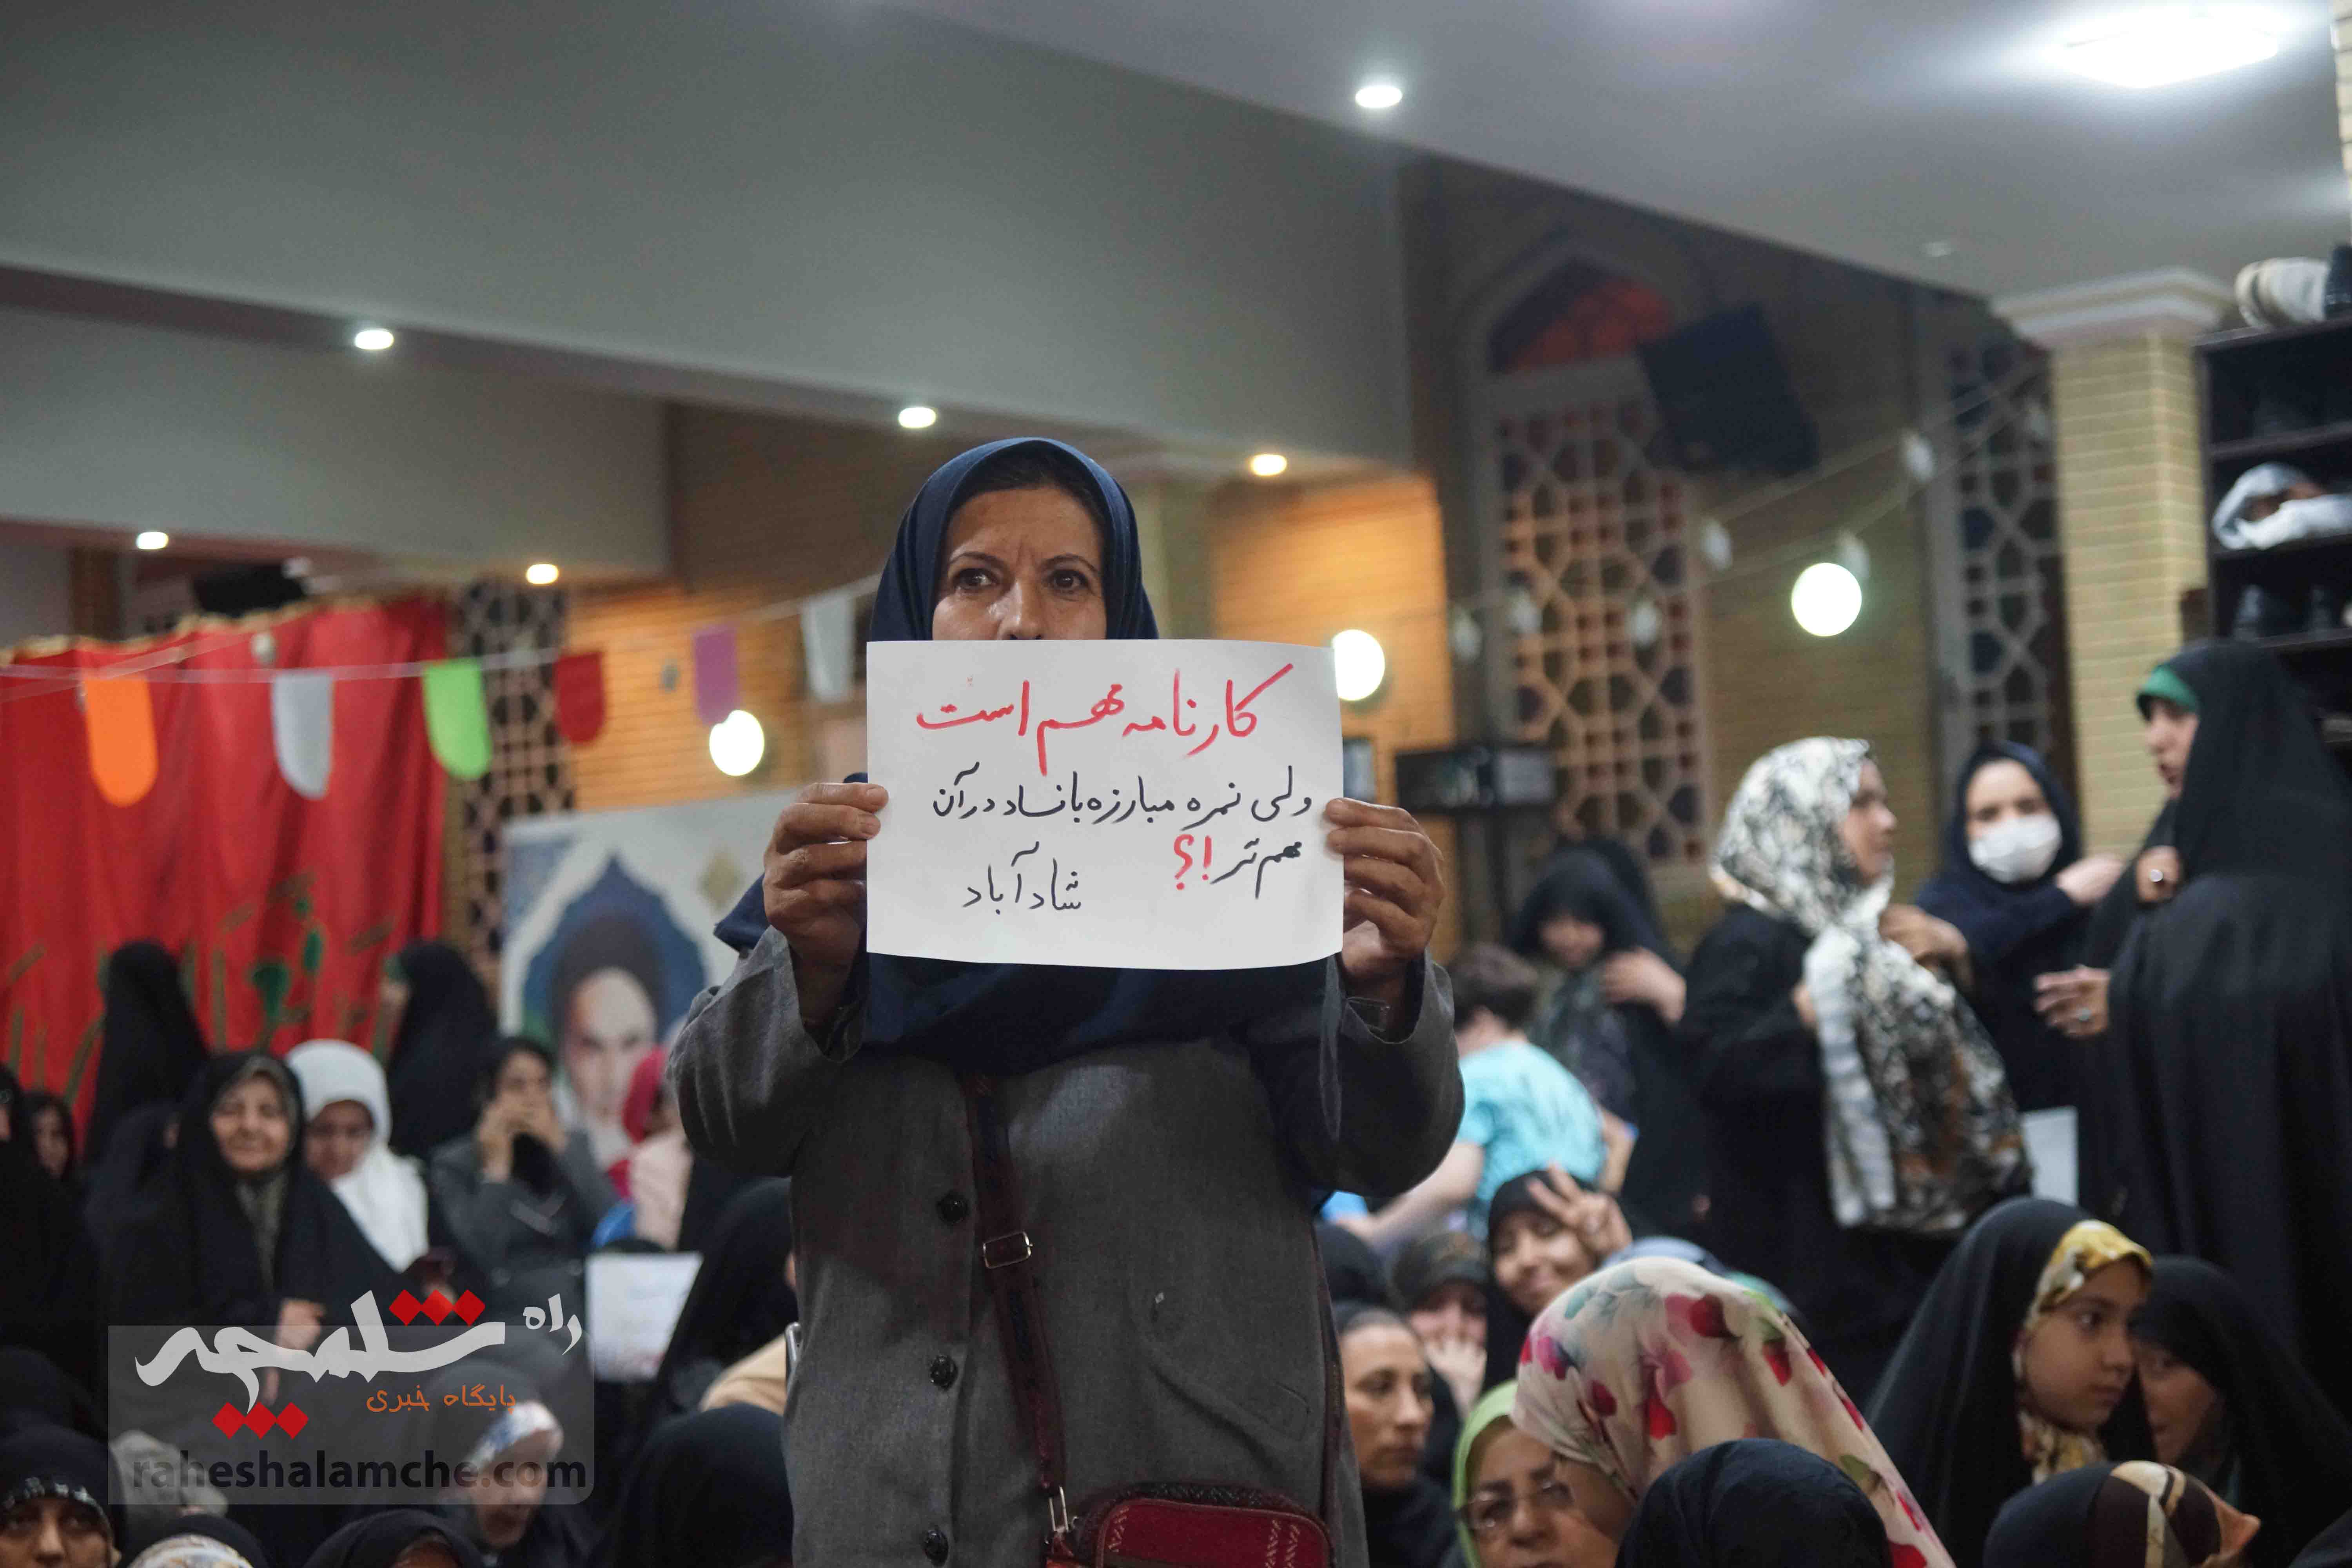 کارنامه مهم است
ولی نمره مبارزه با فساد در آن
مهم‌تر!؟
شادآباد
راه شلمچه
پایگاه خبری
raheshalamche.com